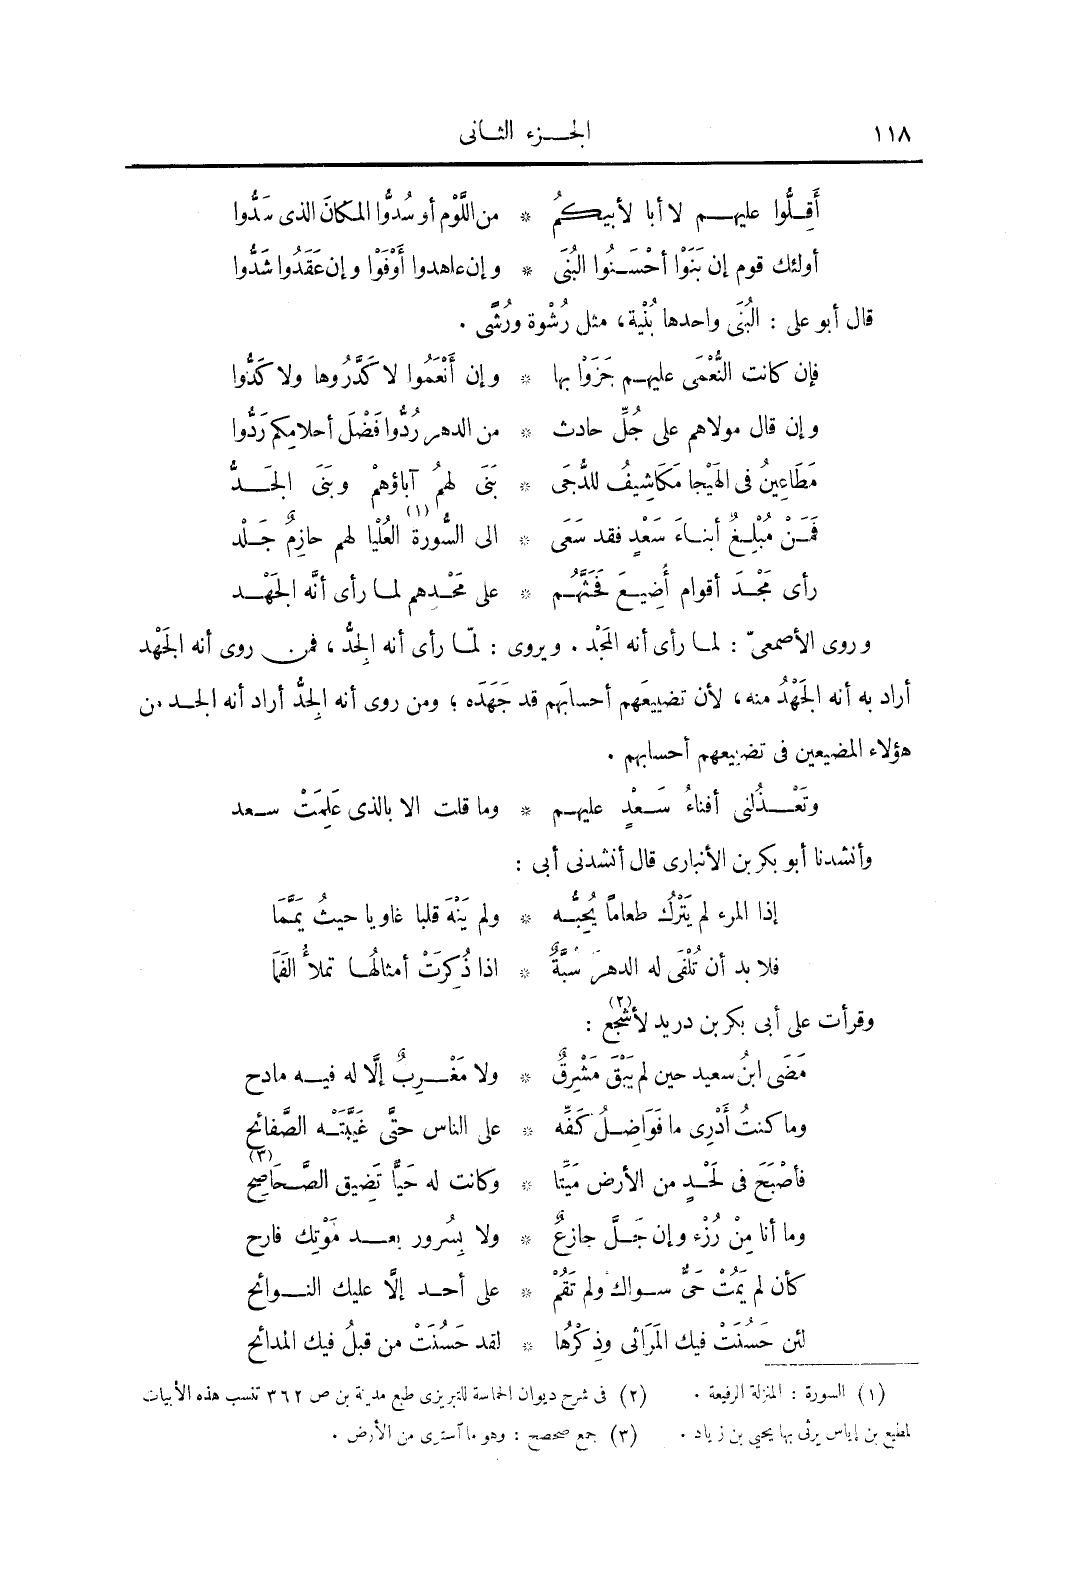 ١١٨
الجـزء الثـانى
أَقِـلُّوا عليهـم لا أبا لأبيكمُ * من اللَّوْم أو سُدُّوا المكانَ الذى سَدُّوا
أولئك قوم إن بَنَوْا أحْسَـنُوا البُنَى * وإن عاهدوا أَوْفَوْا وإن عَقَدُوا شَدُّوا
قال أبو على : البُنَى واحدها بُنْية، مثل رُشْوة ورُشًى .
فإن كانت النُّعْمَى عليهـم جَزَوْا بها * وإن أَنْعَمُوا لا كَدَّرُوها ولا كَدُّوا
وإن قال مولاهم على جُلِّ حادث * من الدهر رُدُّوا فَضْلَ أحلامكم رَدُّوا
مَطَاعِينُ فى الهَيْجا مَكَاشِيفُ للدُّجَى * بَنَى لهمْ آباؤهمْ وبَنَى الجَـدُّ
فَمَـنْ مُبْلِـغٌ أبنـاءَ سَعْدٍ فقد سَعَى * الى السُّورة (١) العُلْيا لهم حازِمٌ جَـلْد
رأى مَجْـدَ أقوام أُضِيعَ فَحَثَّهُـم * على مَجْـدِهم لمـا رأى أنَّه الجَهْـد
وروى الأصمعىّ : لمـا رأى أنه المَجْد . ويروى : لمّـا رأى أنه الجِدُّ ، فمن روى أنه الجَهْد
أراد به أنه الجَهْدُ منه، لأن تضييعَهم أحسابَهم قد جَهَدَه ؛ ومن روى أنه الجِدُّ أراد أنه الجـد من
هؤلاء المضيعين فى تضييعهم أحسابهم .
وتَعْـذُلنى أفناءُ سَـعْدٍ عليهـم * وما قلت الا بالذى عَلِمَتْ سـعد
وأنشدنا أبو بكر بن الأنبارى قال أنشدنى أبى :
إذا المرء لم يَتْرُك طعامًا يُحِبُّـه * ولم يَنْهَ قلبا غاويا حيثُ يَمَّمَا
فلا بد أن تُلْفَى له الدهرَ سُبَّةٌ * اذا ذُكِرَتْ أمثالُهـا تملأُ الفَمَا
وقرأت على أبى بكر بن دريد لأشجع (٢) :
مَضَى ابنُ سعيد حين لم يَبْقَ مَشْرِقٌ * ولا مَغْـرِبٌ إلَّا له فيـه مادح
وما كنتُ أَدْرِى ما فَوَاضِـلُ كَفِّه * على الناس حتَّى غَيَّبَتْـه الصَّفائح
فأصْبَحَ فى لَحْـدٍ من الأرض مَيِّتًا * وكانت له حَيًّا تَضِيق الصَّـحَاصِح (٣)
وما أنا مِنْ رُزْء وإن جَـلَّ جازعٌ * ولا بِسُرور بعـد مَوْتك فارح
كأن لم يَمُتْ حَىٌّ سـواك ولم تَقُمْ * على أحـد إلَّا عليك النـوائح
لئن حَسُنَتْ فيك المَرَاثى وذِكْرُها * لقد حَسُنَتْ من قبلُ فيك المدائح
(١) السورة : المنزلة الرفيعة . (٢) فى شرح ديوان الحماسة للتبريزى طبع مدينة بن ص ٣٦٢ تنسب هذه الأبيات
لمطيع بن إياس يرثى بها يحيى بن زياد . (٣) جمع صحصح : وهو ما آستوى من الأرض .